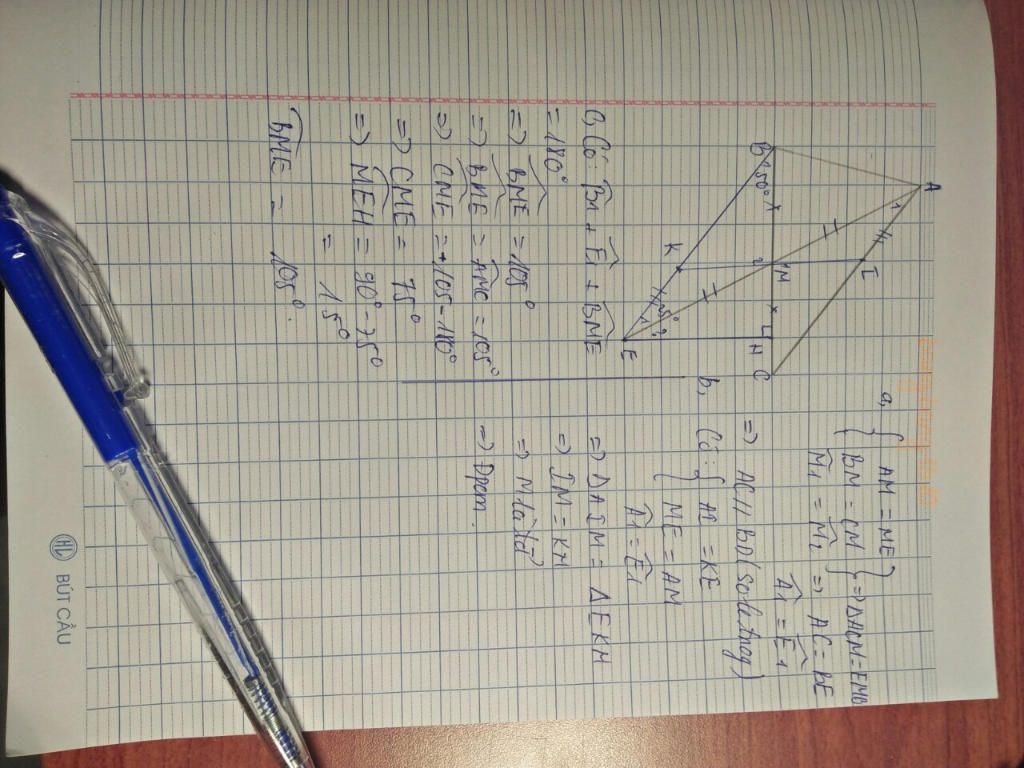 A
1
I
B
50°
M
2
1
K
H
C
25°
1
2
E
a, { AM = ME
BM = CM } => ΔACM = EMB
M̂1 = M̂2 => AC = BE
Â1 = Ê1
=> AC // BD (soletrong)
b, Có: { AI = KE
ME = AM
Â1 = Ê1
=> ΔAIM = ΔEKM
=> IM = KM
=> M là tđ
=> Đpcm.
C, Có: B̂1 + Ê1 + BME
= 180°
=> BME = 105°
=> BME = AMC = 105°
=> CME = +105-180°
=> CME = 75°
=> MEH = 90° - 75°
= 15°
BME = 105°.
HL BÚT CẦU